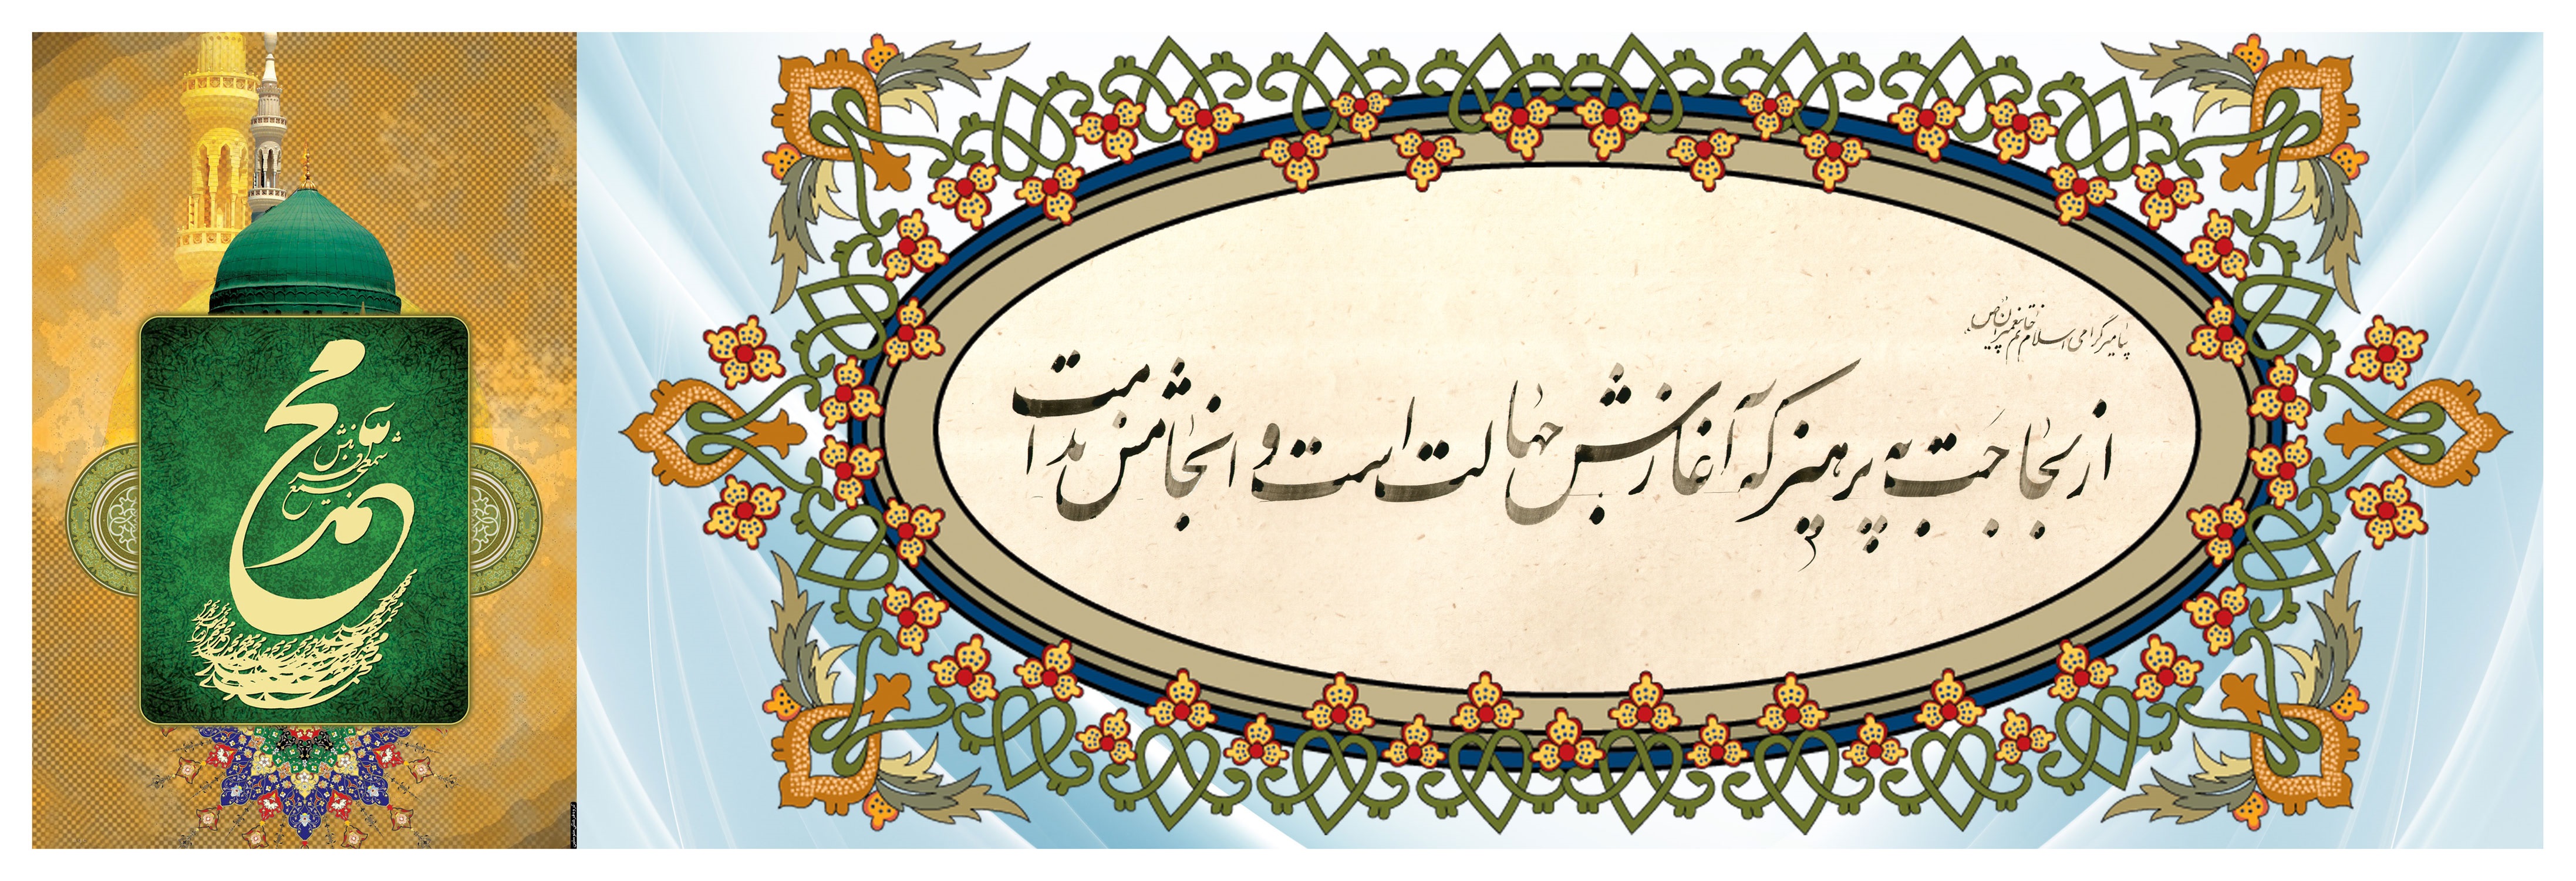 محمد
شمع جمع آفرینش
پیامبر گرامی اسلام خاتم پیغمبران ص
از لجاجت به پرهیز که آغازش جهالت است و انجامش ندامت